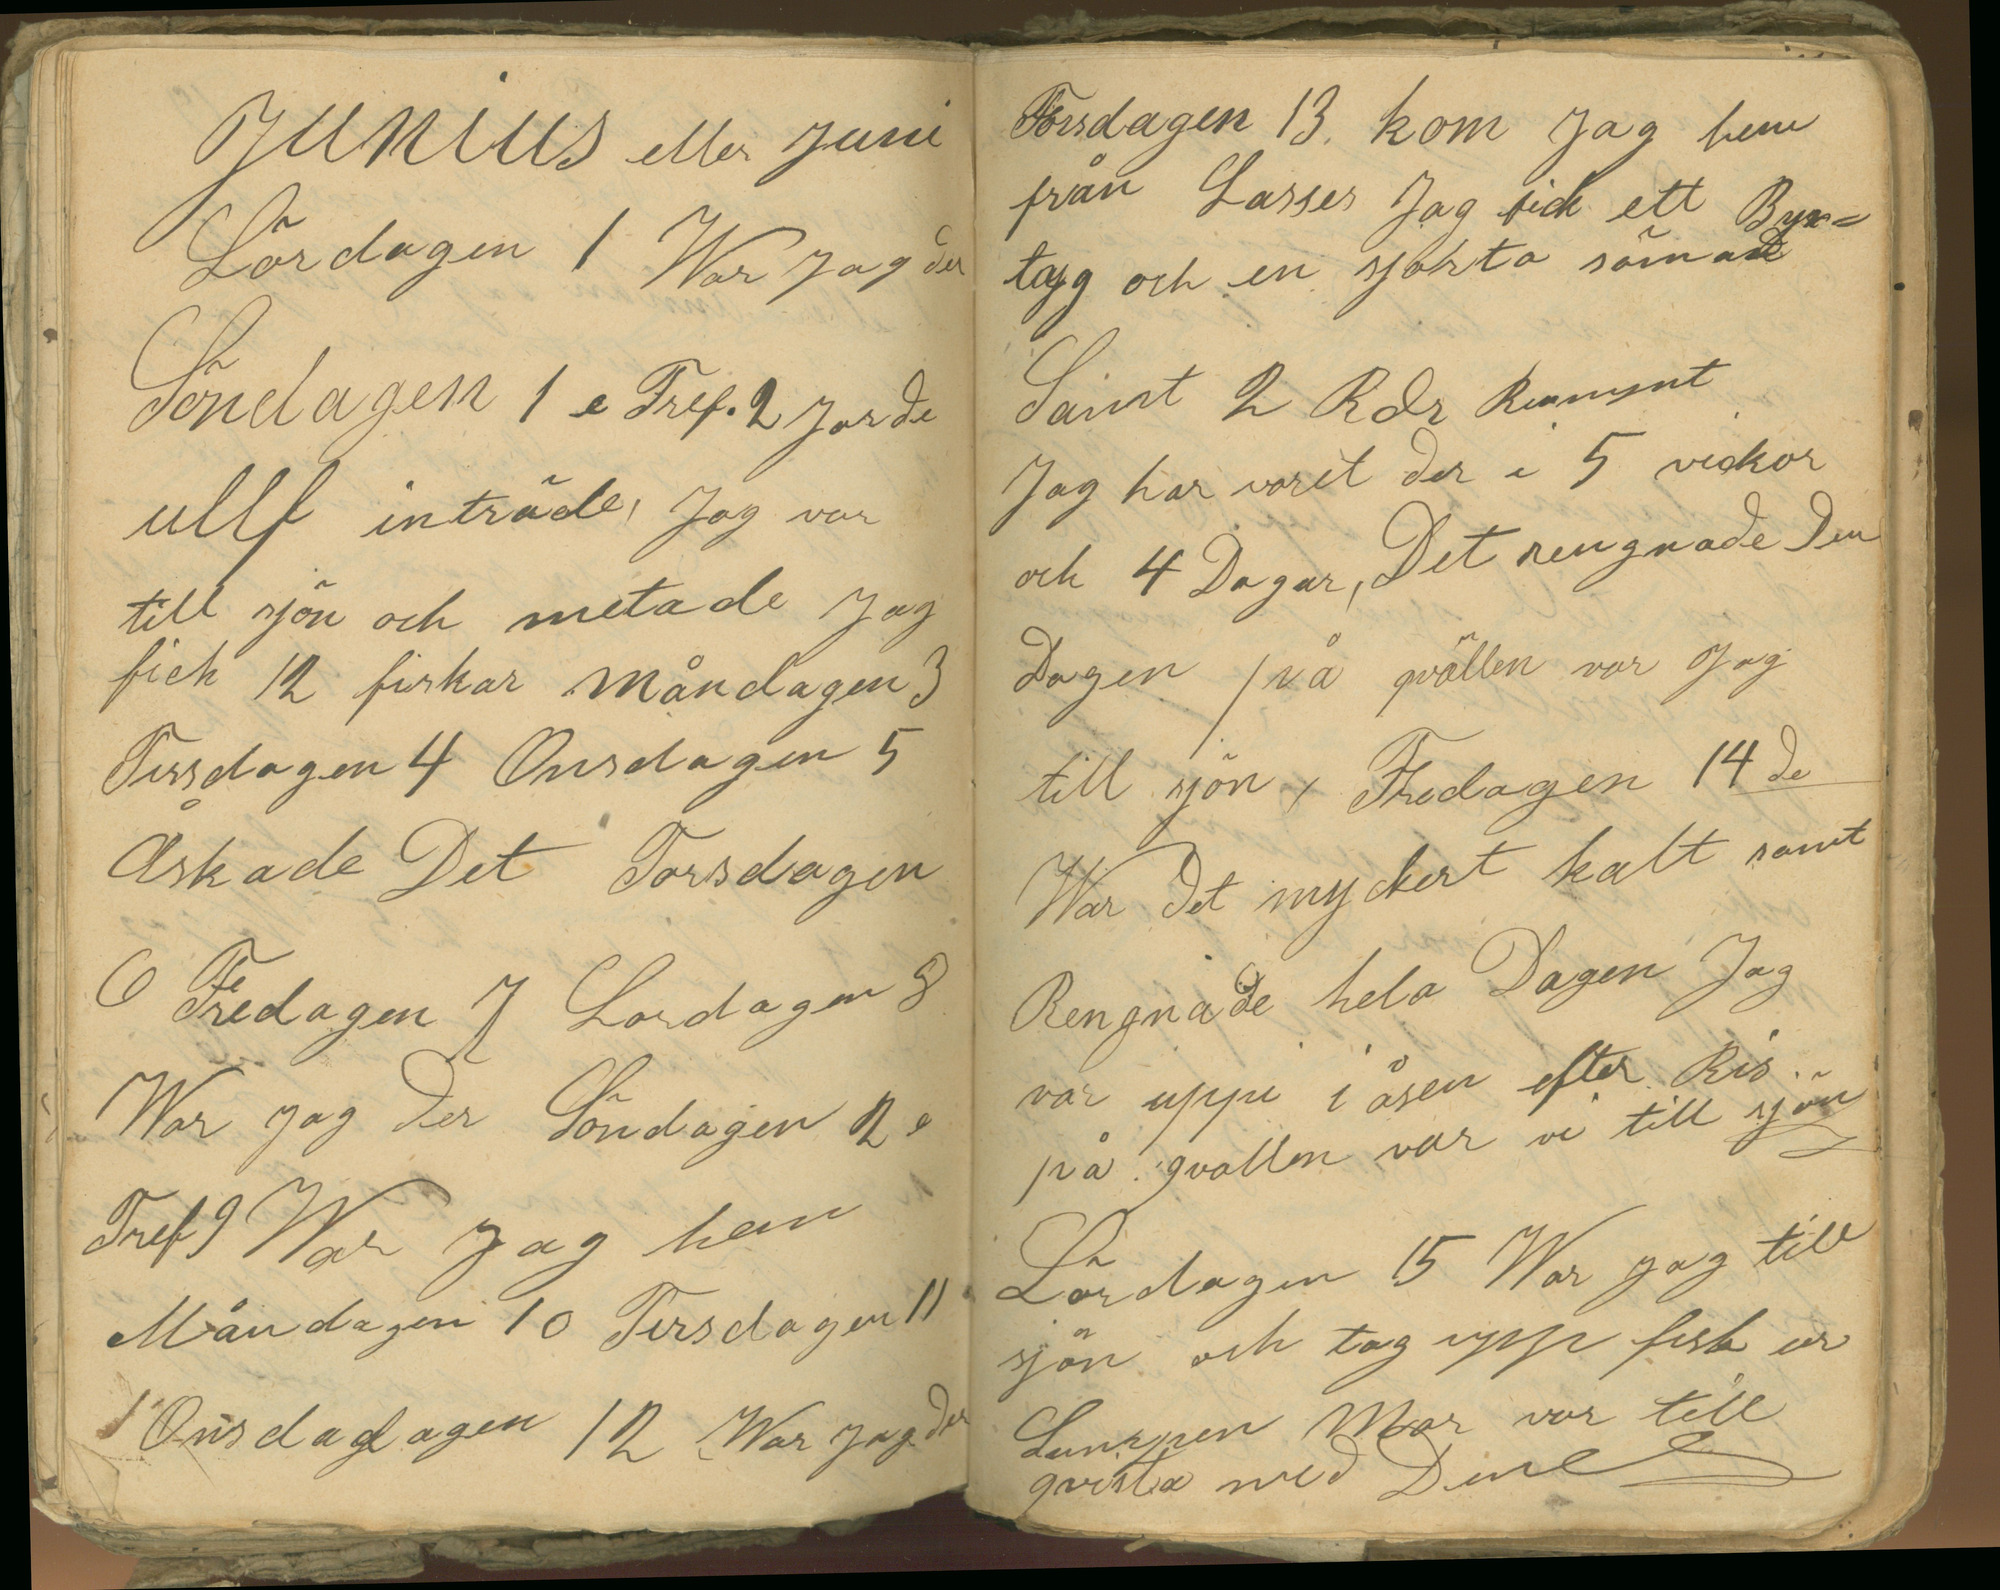 Junius eller Juni
Lördagen 1 War jag der
Söndagen 1 e Tref. 2 jorde
ullf inträde, Jag var
till sjön och metade Jag
fick 12 fiskar Måndagen 3
Tissdagen 4 Onsdagen 5
Åskade Det Torsdagen
6 Fredagen 7 Lordagen 8
War jag der Söndagen 2 e
Tref 9 War jag hem
Måndagen 10 Tirsdagen 11
Onsdagdagen 12 War jag der
Torsdagen 13. kom Jag hem
från Lasses Jag fick ett Byx=
tayg och en sjorta sömad
Samt 2 Rdr
Jag har varit der i 5 veckor
och 4 Dagar, Det rengnade Den
Dagen på qvällen var Jag
till sjön, Fredagen 14 de
War det myckert kalt samt
Rengnade hela Dagen Jag
var uppi i åsen efter Ris.
på qvallen var vi till sjön
Lördagen 15 War jag till
sjön och tog upp fisk ur
Sumpen Mor var till
qvista med